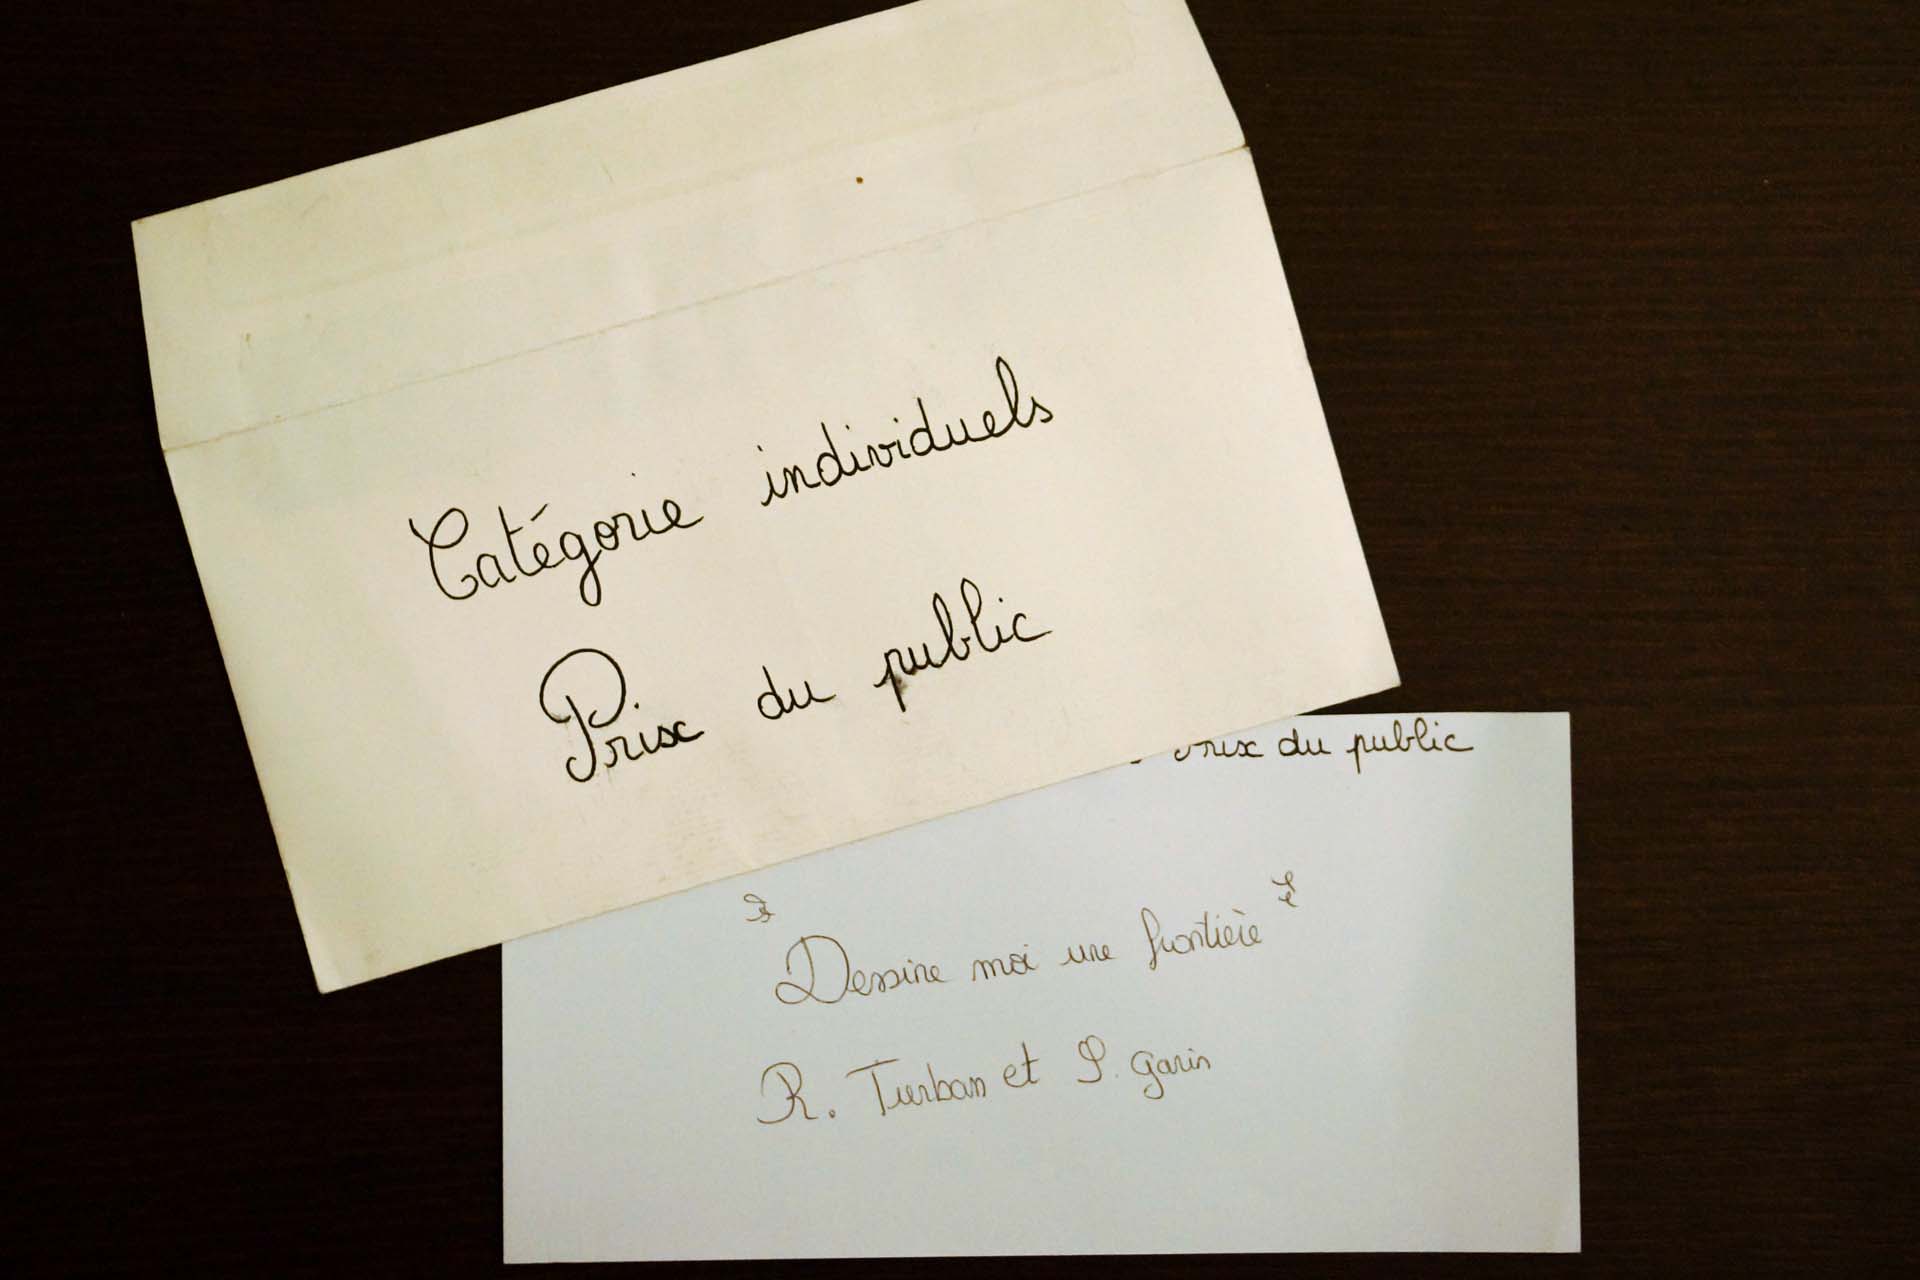 Catégorie individuels
Prix du public
Prix du public
Dessine moi une frontière
R. Turban et P. Garin